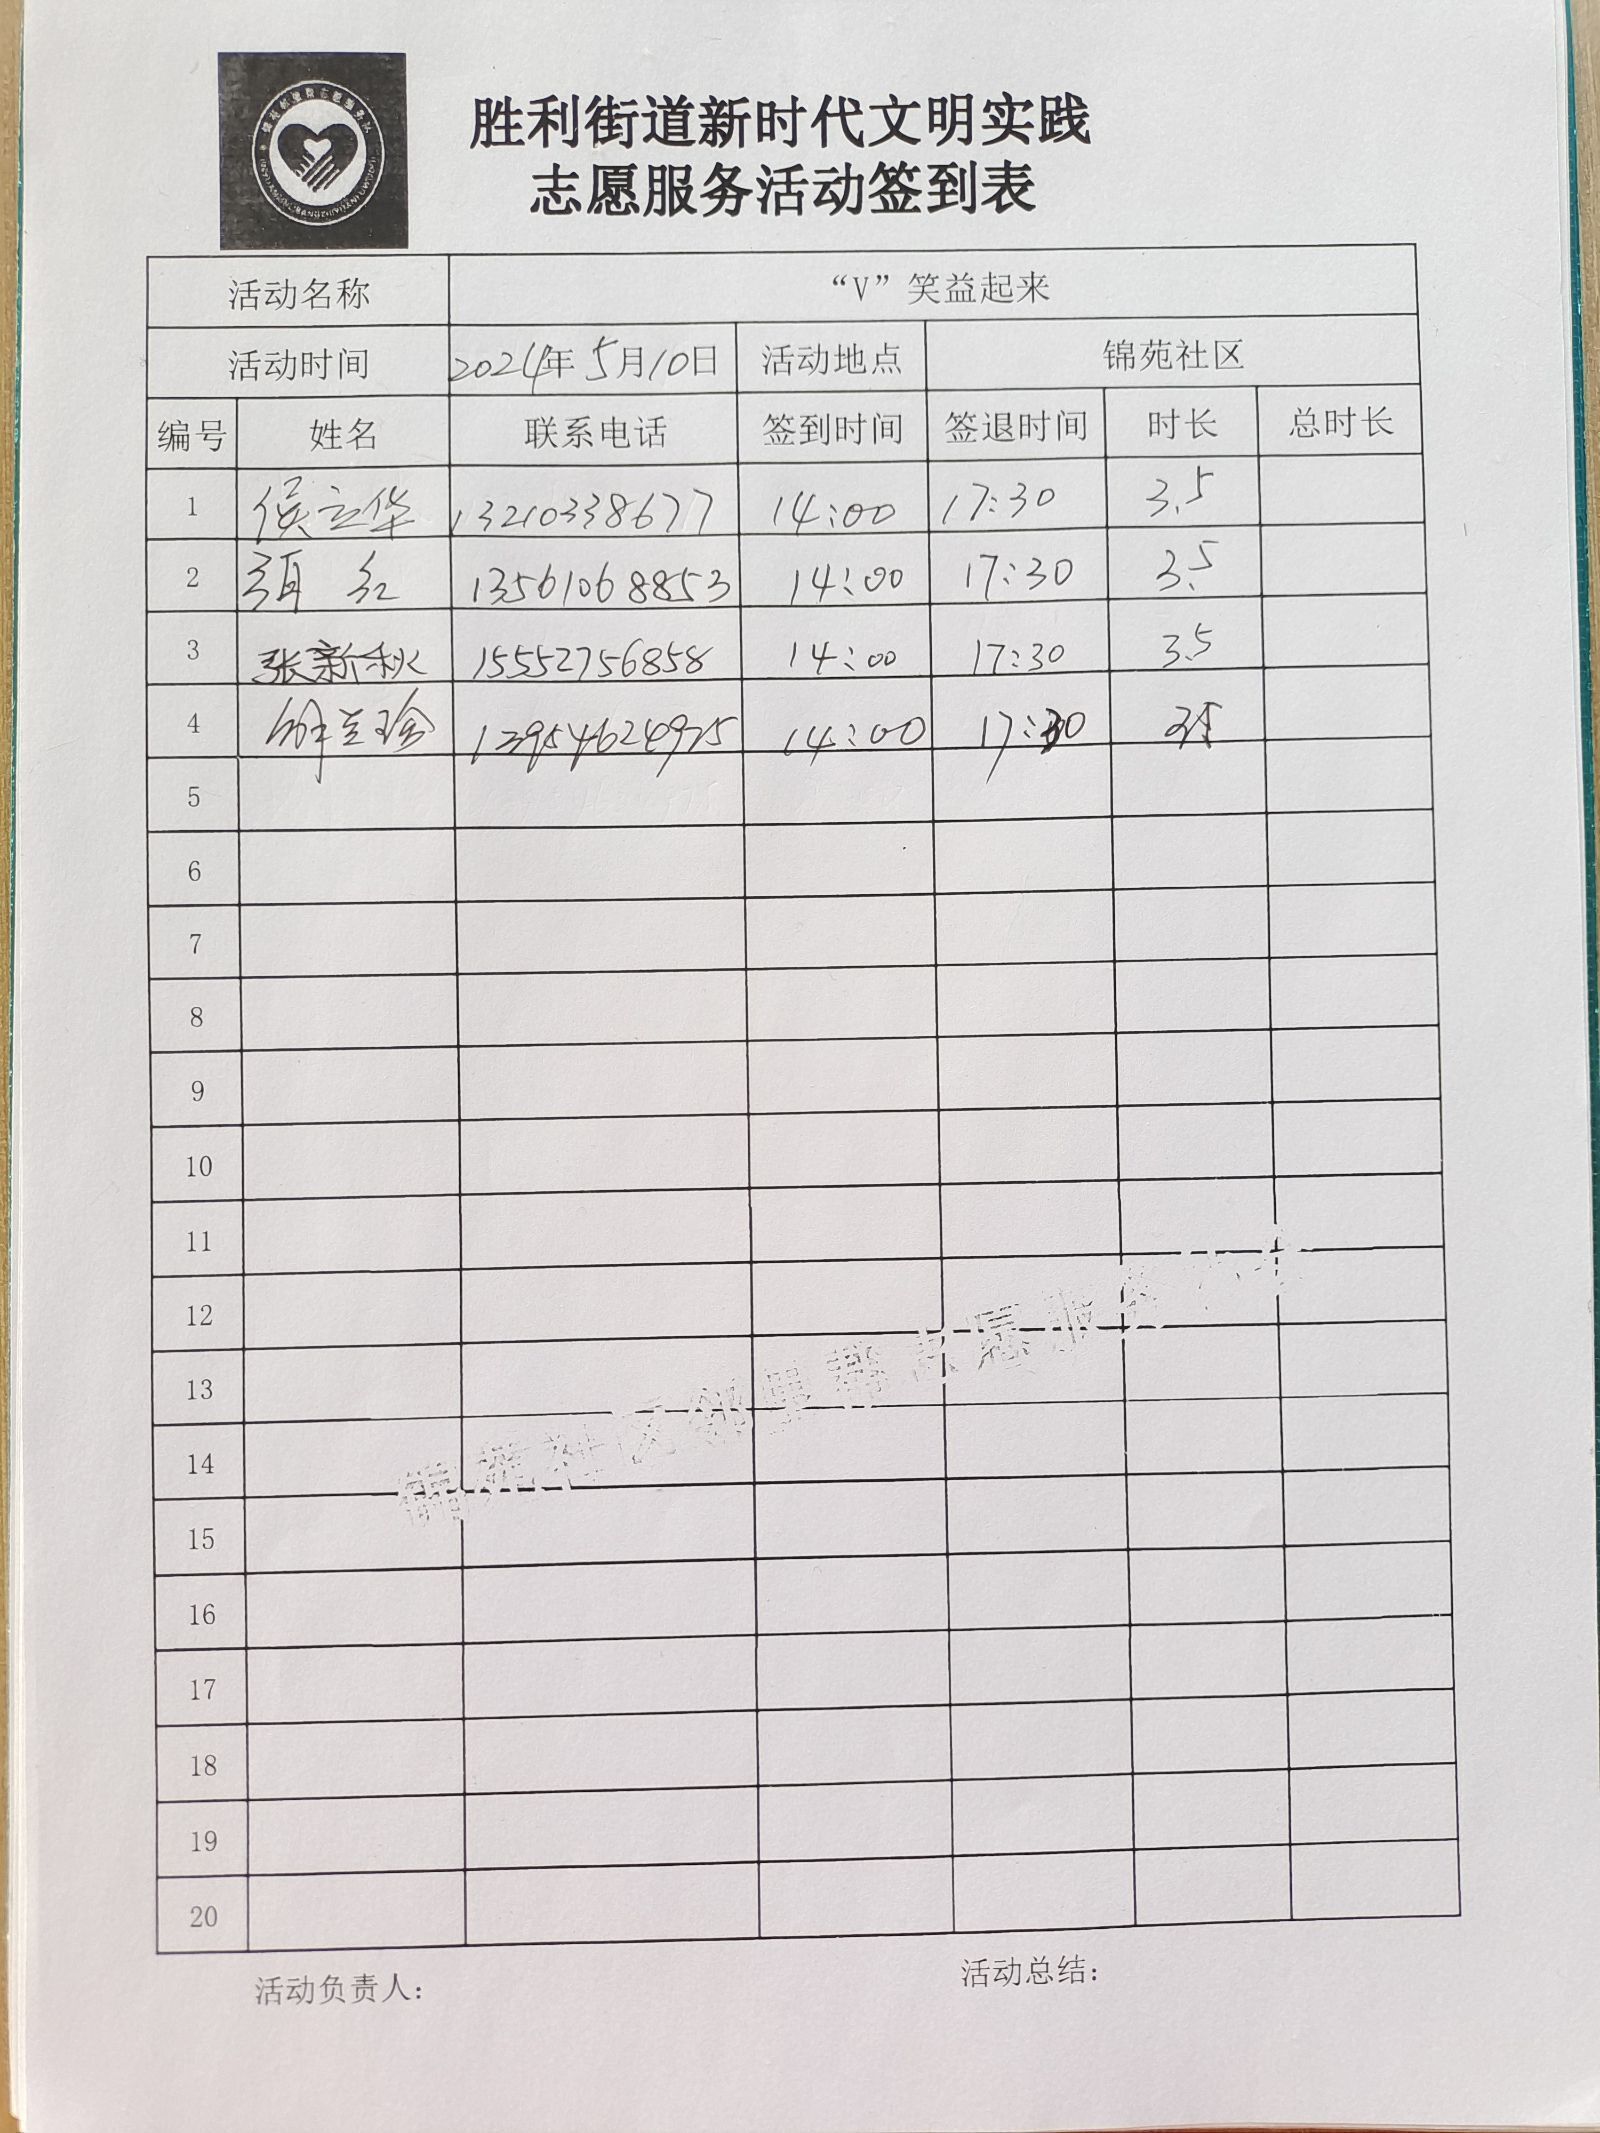 胜利街道新时代文明实践
志愿服务活动签到表
活动名称 “V”笑益起来
活动时间 2024年5月10日 活动地点 锦苑社区
编号 姓名 联系电话 签到时间 签退时间 时长 总时长
1 侯立华 13210338677 14:00 17:30 3.5
2 红 13561068853 14:00 17:30 3.5
3 张新秋 15552756858 14:00 17:30 3.5
4 13954624975 14:00 17:30 3.5
5
6
7
8
9
10
11
12
13
14
15
16
17
18
19
20
锦苑社区邻里帮志愿服务
活动负责人：
活动总结：